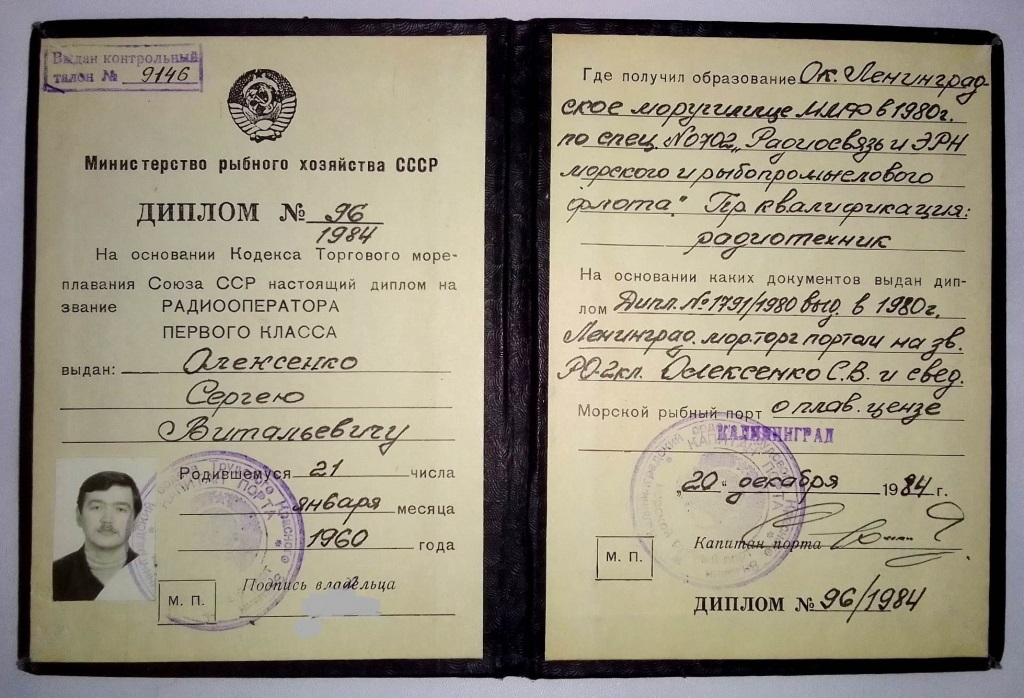 Выдан контрольный
талон № 9146
Министерство рыбного хозяйства СССР
ДИПЛОМ № 96/1984
На основании Кодекса Торгового море-
плавания Союза ССР настоящий диплом на
звание РАДИООПЕРАТОРА
ПЕРВОГО КЛАССА
выдан: Олексенко
Сергею
Витальевичу
Родившемуся 21 числа
января месяца
1960 года
Подпись владельца
М. П.
КАПИТАН ПОРТА
Где получил образование Ок. Ленинград-
ское моручилище ММФ в 1980г.
по спец. №0702 „Радиосвязь и ЭРН
морского и рыбопромыслового
флота". Пр. квалификация:
радиотехник
На основании каких документов выдан дип-
лом Дипл. №1791/1980 выд. в 1980г.
Ленинград. мор. торг портом на зв.
РО-2кл. Олексенко С.В. и свед.
Морской рыбный порт о плав. цензе
КАЛИНИНГРАД
КАПИТАН ПОРТА
„20" декабря 1984 г.
Капитан порта
М. П.
ДИПЛОМ № 96/1984